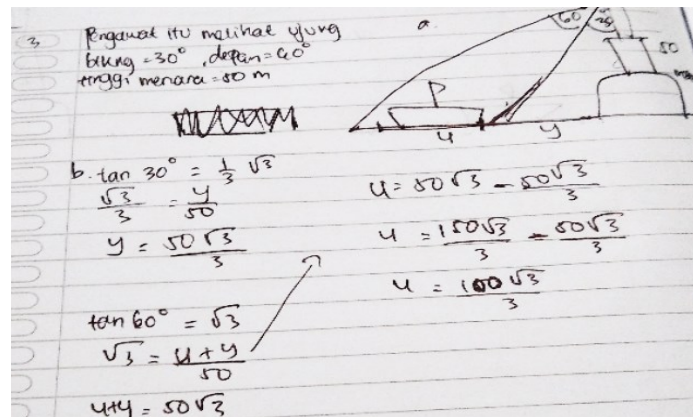 3 Pengawal itu melihat ujung
bikng = 30°, depan = 60°
tinggi menara = 50 m
a.
60
30
50
u
y
b. tan 30° = 1/3 √3
√3/3 = y/50
y = 50√3/3
tan 60° = √3
√3 = u+y/50
u+y = 50√3
u = 50√3 - 50√3/3
u = 150√3/3 - 50√3/3
u = 100√3/3